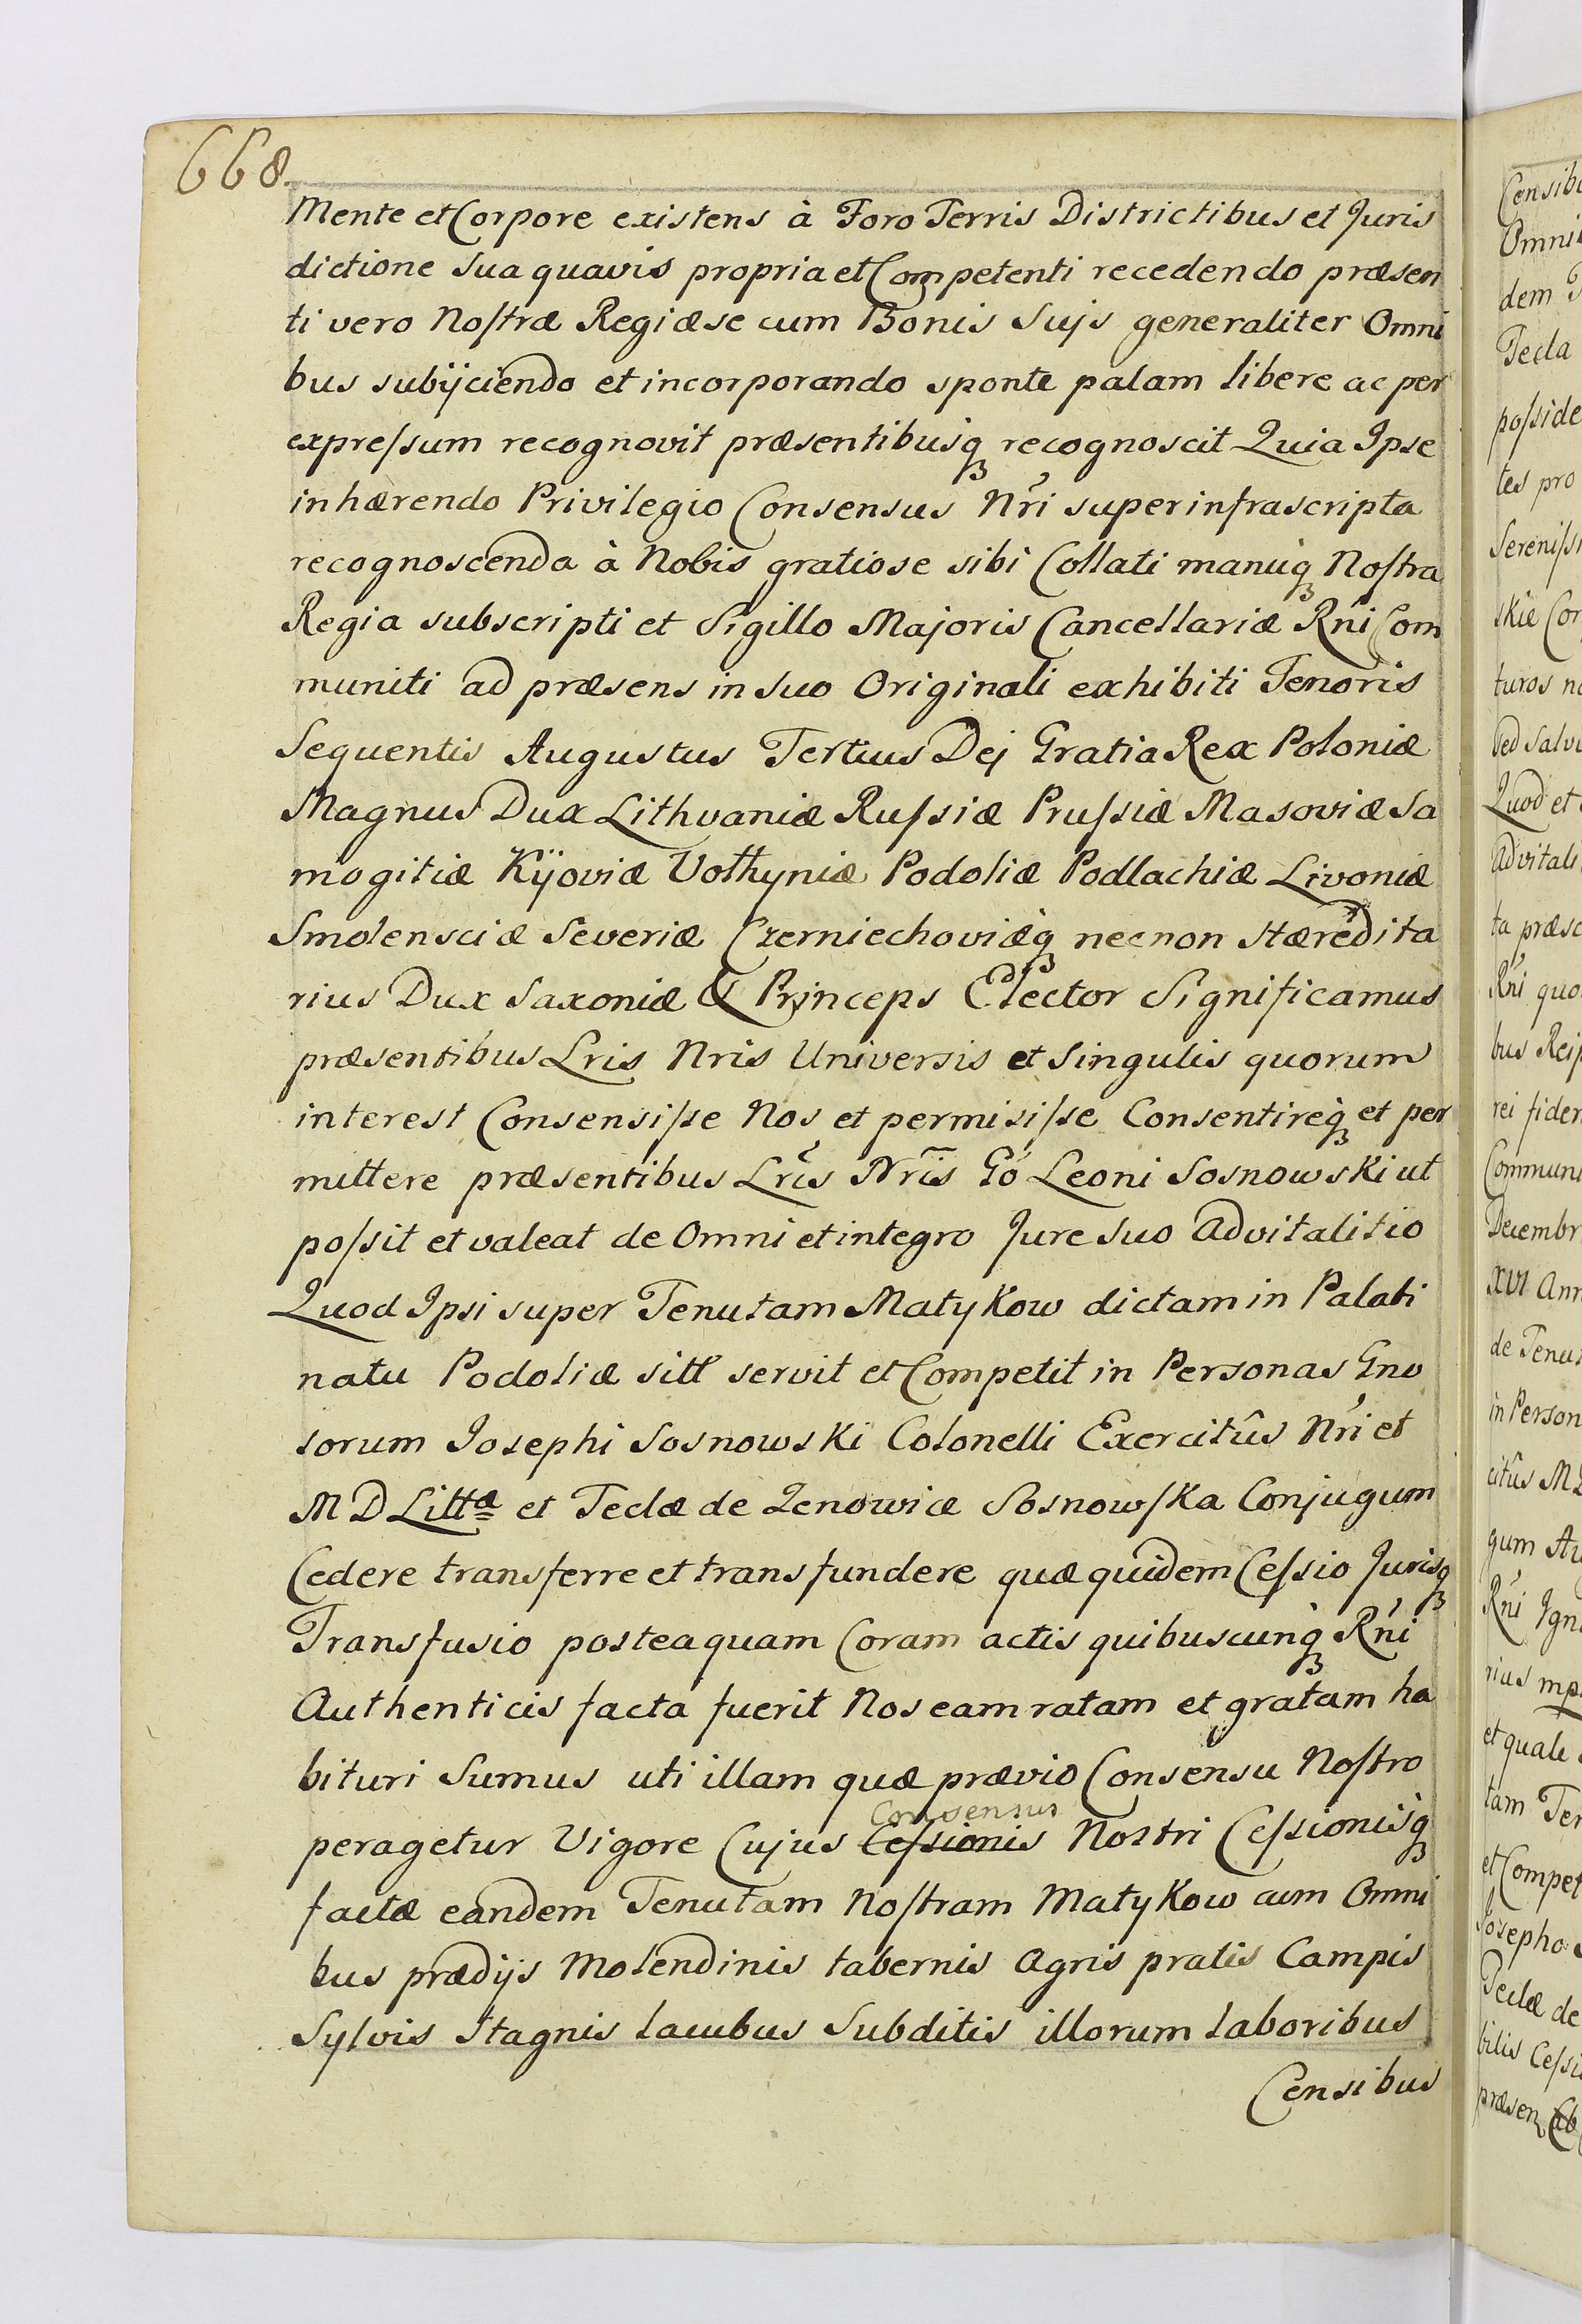 668.
Mente et Corpore existens à Foro Terris Districtibus et Juris
dictione Sua quavis propria et Competenti recedendo præsen
ti vero Noſtræ Regiæ se cum Bonis Sujs generaliter Omni
bus subijciendo et incorporando sponte palam libere ac per
expreſsum recognovit præsentibusq́ꝫ recognoscit Quia Ipse
inhærendo Privilegio Consensus Nri super infrascripta
recognoscenda à Nobis gratiose sibi Collati manuq́ꝫ Noſtra
Regia subscripti et Sigillo Majoris Cancellariæ Rni Com
muniti ad præsens in Suo Originali exhibiti Tenoris
Sequentis Augustus Tertius Dej Gratia Rex Poloniæ
Magnus Dux Lithvaniæ Ruſsiæ Pruſsiæ Masoviæ Sa
mogitiæ Kijoviæ Volhyniæ Podoliæ Podlachiæ Livoniæ
Smolensciæ Severiæ Czerniechoviæq́ꝫ necnon Hæredita
rius Dux Saxoniæ & Princeps Elector Significamus
præsentibus Lris Nris Universis et Singulis quorum
interest Consensiſse Nos et permisiſse Consentireq́ꝫ et per
mittere præsentibus Lris Nris Go Leoni Sosnowski ut
poſsit et valeat de Omni et integro Jure Suo Advitalitio
Quod Ipsi super Tenutam Matykow dictam in Palati
natu Podoliæ sitt servit et Competit in Personas Gno
sorum Josephi Sosnowski Colonelli Exercitûs Nri et
M D Littæ et Teclæ de Zenowiæ Sosnowſka Conjugum
Cedere transferre et transfundere quæ quidem Ceſsio Jurisqꝫ
Transfusio posteaquam Coram actis quibuscunq́ꝫ Rni
Authenticis facta fuerit Nos eam ratam et gratam ha
bituri Sumus uti illam quæ prævio Consensu Noſtro
Consensus
peragetur Vigore Cujus Ceſsionis Nostri Ceſsionisq́ꝫ
factæ eandem Tenutam Noſtram Matykow cum Omni
bus prædijs Molendinis tabernis Agris pratis Campis
Sylvis Stagnis lacubus Subditis illorum laboribus
Censibus